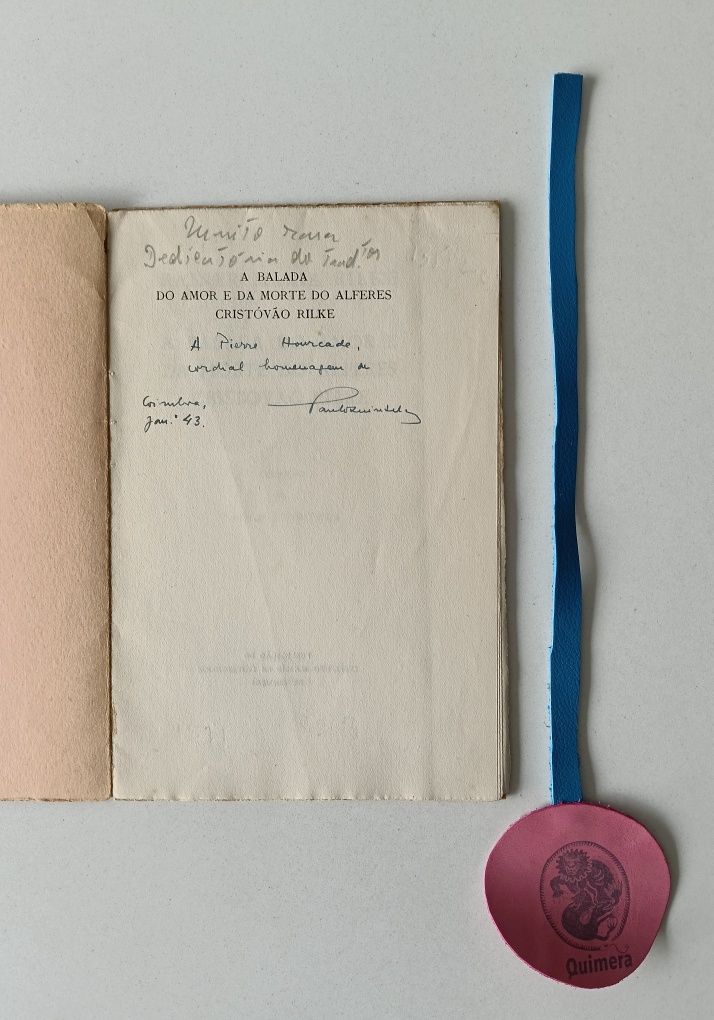 Muito rara
Dedicatória do Tradtor
A BALADA
DO AMOR E DA MORTE DO ALFERES
CRISTÓVÃO RILKE
A Pierre Hourcade,
cordial homenagem de
Paulo Quintela
Coimbra,
Jan.º 43.
Quimera